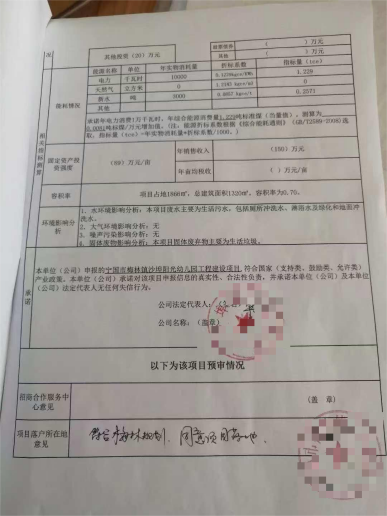 况
其他投资（20）万元
（ ）万元
（ ）万元
能耗情况
能源名称 单位 年实物消耗量 折标系数 指标量（tce）
电力 千瓦时 10000 0.1229kgce/KWh 1.229
天然气 立方米 0 0
新水 吨 3000 0.2571
其他
承诺年电力消费1万千瓦时，年综合能源消费量1.229吨标准煤（当量值），测算为
吨标煤/万元增加值。（注：能源折标系数根据《综合能耗通则》（GB/T2589-2020）选
取，指标量（tce）=年实物消耗量*折标系数/1000。）
固定资产投资强度
（69）万元/亩
年销售收入 （150）万元
年亩均税收 （ ）万元/亩
容积率
项目占地1866㎡，总建筑面积1320㎡，容积率为0.70。
环境影响分析
1、水环境影响分析：本项目废水主要为生活污水，包括厕所冲洗水、淋浴水及绿化和地面冲
洗水。
2、大气环境影响分析：无
3、噪声污染影响分析：无
4、固体废物影响分析：本项目固体废弃物主要为生活垃圾。
承诺
本单位（公司）申报的宁国市梅林镇沙埠阳光幼儿园工程建设项目，符合国家（支持类、鼓励类、允许类）
产业政策。本单位（公司）承诺对该项目申报信息的真实性、合法性负责，并承诺本单位（公司）及本单位
（公司）法定代表人无任何失信行为。
公司法定代表人：
公司名称：（盖章）
以下为该项目预审情况
招商合作服务中心意见
（盖 章）
项目落户所在地意见
符合梅林规划，同意项目